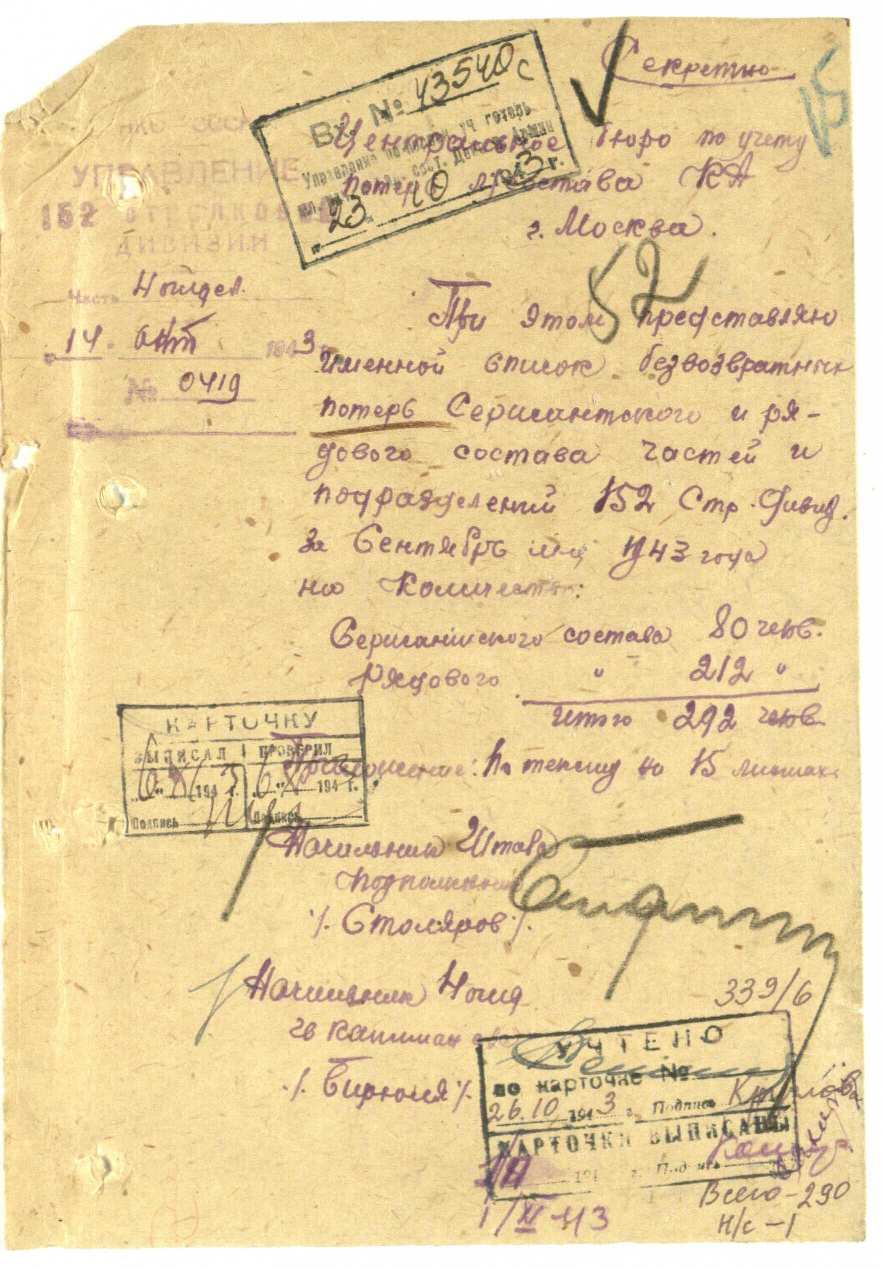 Секретно
15
Вх. № 43540с
Управление по персон. уч. потерь
23 10 1943 г.
Центральное бюро по учету
потерь л/состава КА
г. Москва.
НКО СССР
УПРАВЛЕНИЕ
152 СТРЕЛКОВОЙ
ДИВИЗИИ
Часть
14. окт 1943 г.
№ 0419
52
При этом представляю
именной список безвозвратных
потерь Сержантского и ря-
дового состава частей и
подразделений 152 Стр. Дивиз.
за Сентябрь м-ц 1943 года
на количество:
Сержантского состава 80 челов.
Рядового " 212 "
Итого 292 челов.
Приложение: По тексту на 15 листах
КАРТОЧКУ
ВЫПИСАЛ ПРОВЕРИЛ
"6" XI 1943 г. "6" XI 194 г.
Подпись Подпись
Начальник Штаба
подполковник
/. Столяров /.
Начальник
гв капитан
339/6
УЧТЕНО
по карточке №
26.10. 1943 г. Подпись Крылова
КАРТОЧКИ ВЫПИСАНЫ
194 г. Подпись
1/XI 43
Всего - 290
н/с - 1